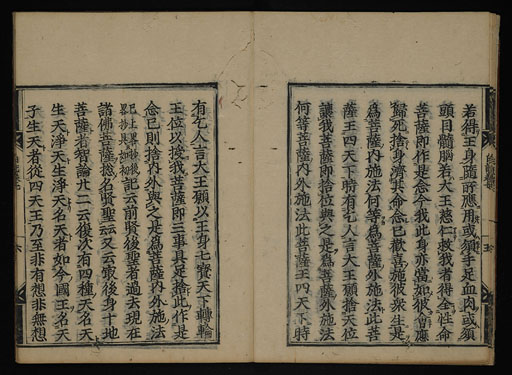 若得王身隨所應用或須手足血肉或須
頭目髓腦若大王慈仁救我者得全性命
菩薩即作是念今我此身亦當如彼會應
歸死捨身濟其命念已歡喜施彼衆生是
爲菩薩内施法何等爲菩薩内外施法此菩
薩王四天下時有乞人言大王願捨天位
讓我菩薩即捨位與之是爲菩薩外施法
何等菩薩内外施法此菩薩王四天下時
有乞人言大王願以王身七寶天下轉輪
王位以授我菩薩即三事具足捨此作是
念已則捨内外與之是爲菩薩内外施法
記云前賢後聖者過去現在
諸佛菩薩揔名賢聖云又云最後身十地
菩薩者智論廿二云復次有四種天名天
生天淨天生淨天名天者如今國王名天
子生天者從四天王乃至非有想非無想